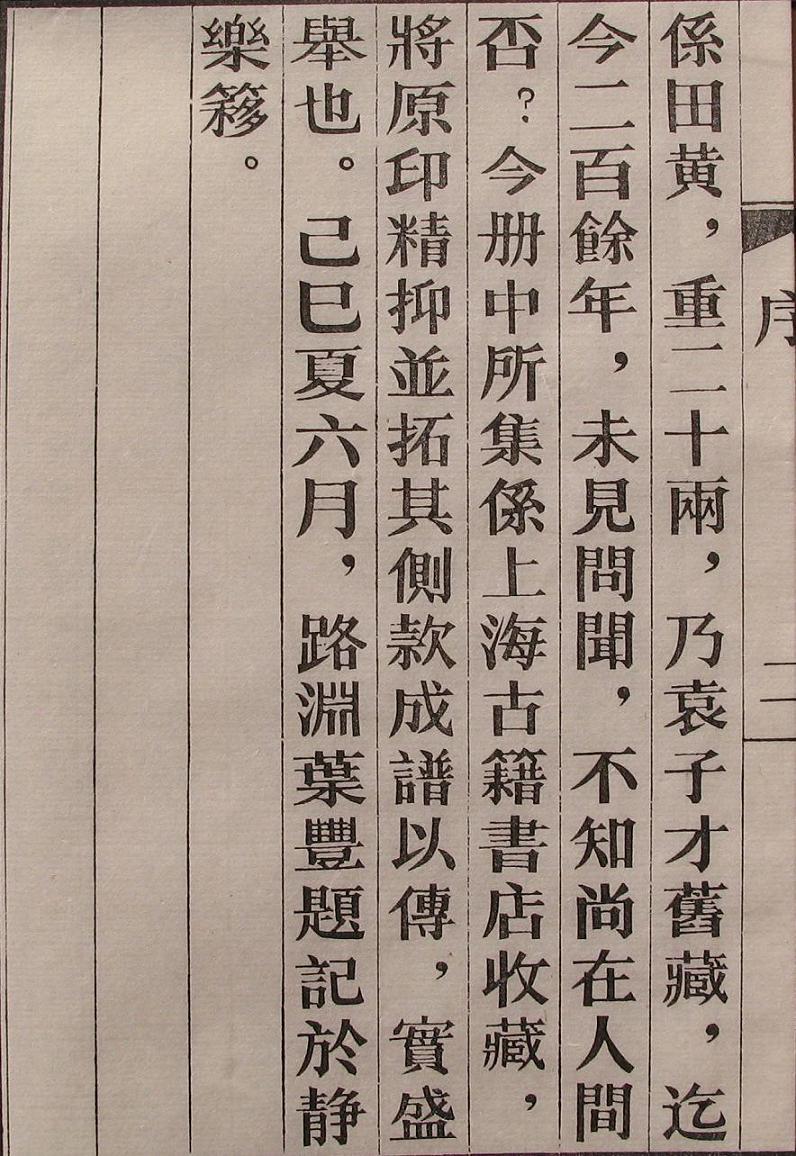 序
二
係田黄，重二十兩，乃袁子才舊藏，迄
今二百餘年，未見問聞，不知尚在人間
否？今册中所集係上海古籍書店收藏，
將原印精抑並拓其側款成譜以傳，實盛
舉也。己巳夏六月，路淵葉豐題記於静
樂簃。